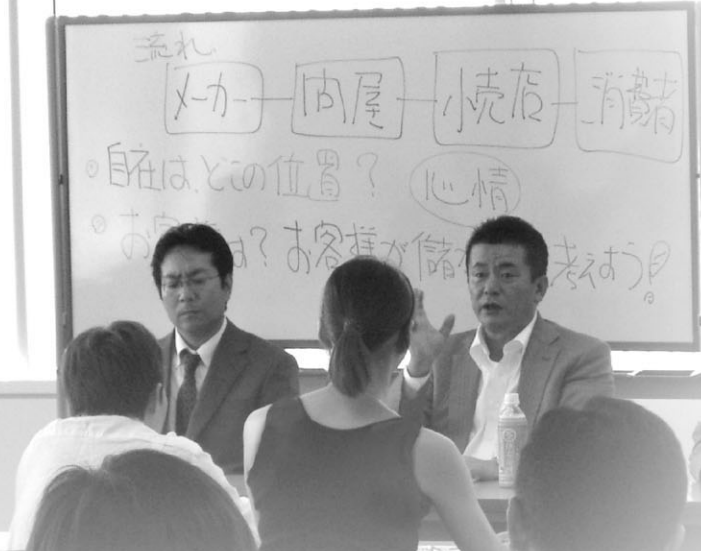 流れ
メーカー 問屋 小売店 消費者
・自在は、どこの位置? 心情
・お客様は? お客様が儲 考えよう!